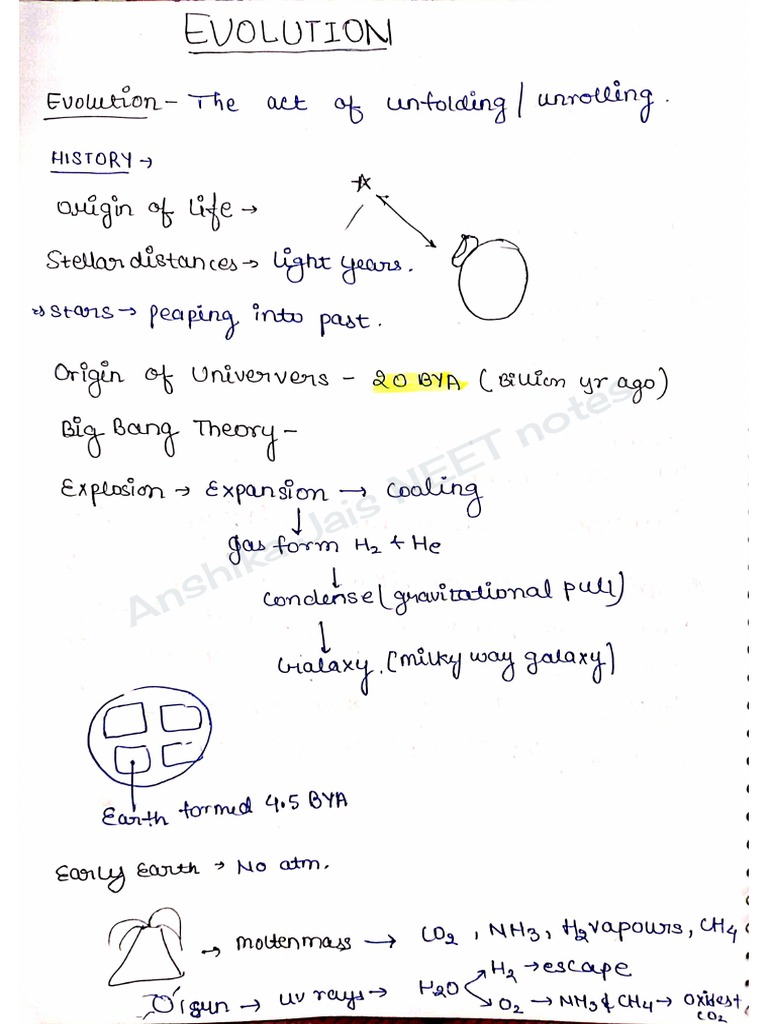 EVOLUTION
Evolution - The act of unfolding / unrolling.
HISTORY →
Origin of life →
Stellar distances → light years.
⇒ stars → peaping into past.
Origin of Univervers - 20 BYA (Billion yr ago)
Big Bang Theory -
Explosion → Expansion → Coaling
↓
gas form H2 + He
↓
condense (gravitational pull)
↓
Gialaxy. (milky way galaxy)
Earth formed 4.5 BYA
Early Earth → No atm.
→ moltenmass → CO2, NH3, H2 vapours, CH4
sun → uv rays → H2O → H2 → escape
→ O2 → NH3 & CH4 → oxidest
CO2
Anshika Jais NEET notes